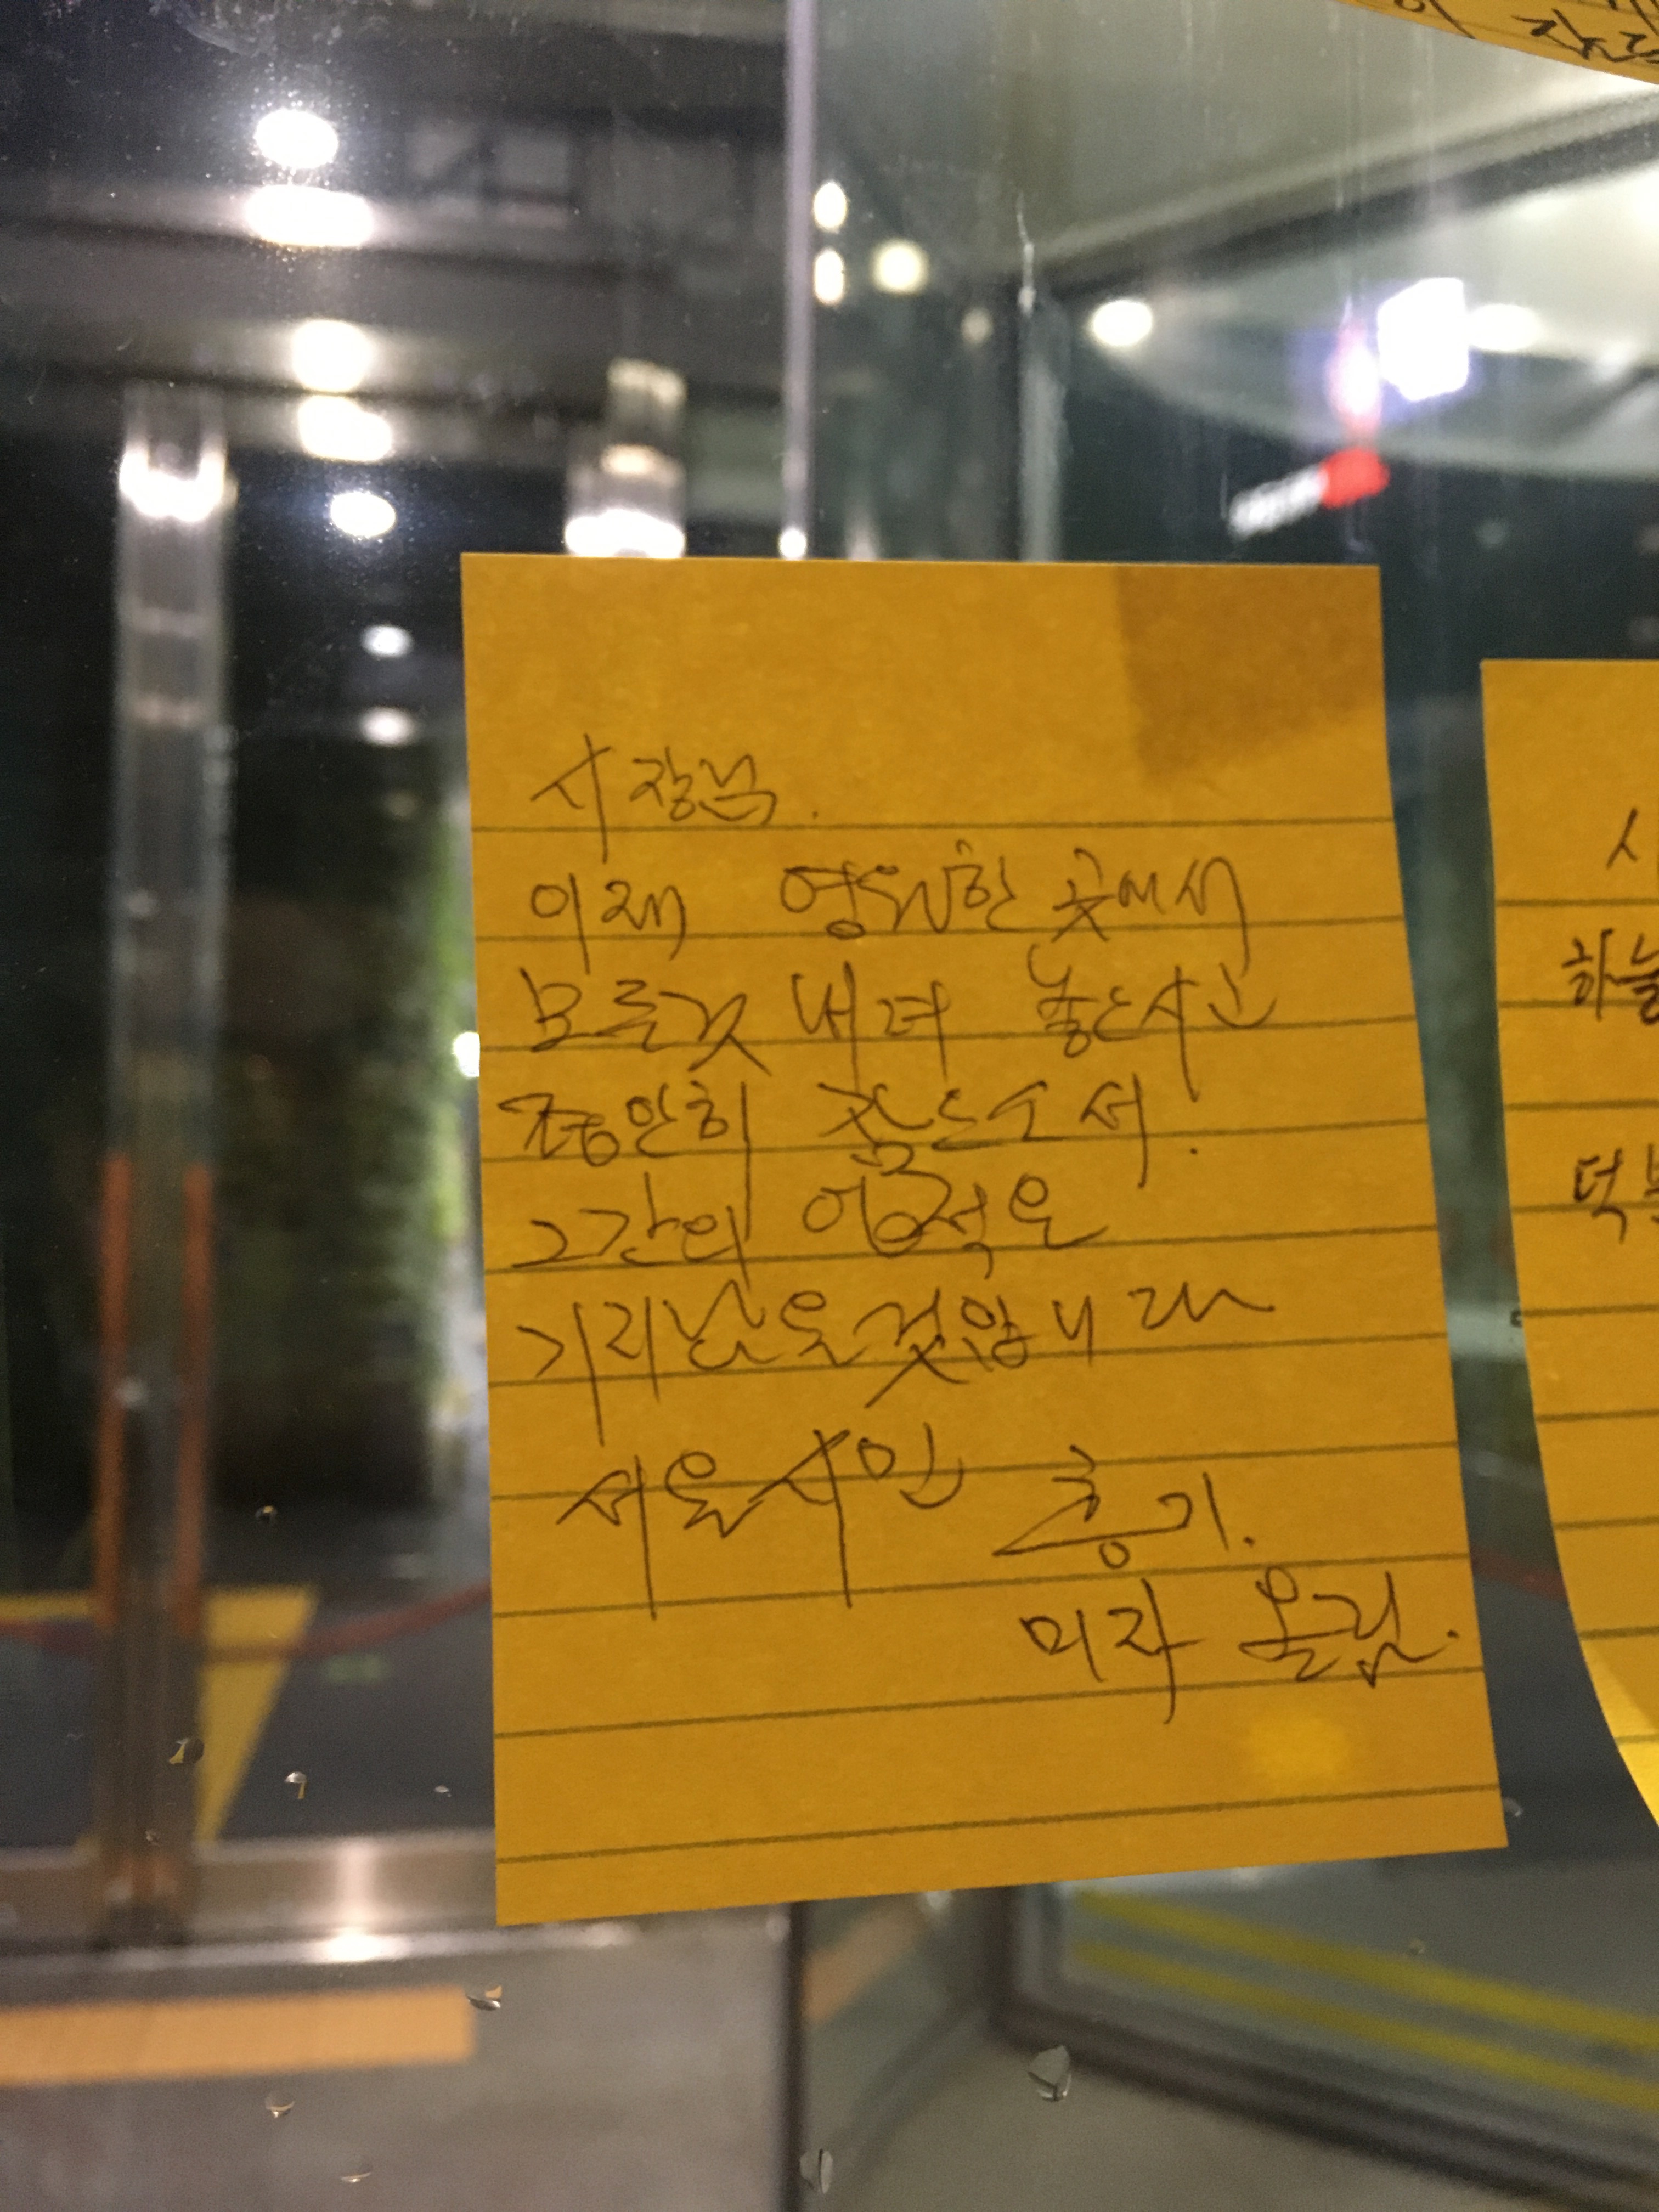 시장님.
이재 영원한 곳에서
모든것 내려 놓으시고
편안히 잠드소서.
그간의 업적은
기리남을것입니다
서울시민 홍기.
미자 올림.
하늘
덕분